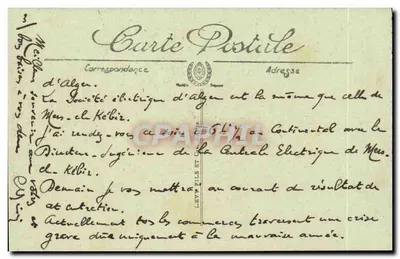 Carte Postale
Correspondance
Adresse
d'Alger.
La Société électrique d'Alger est la même que celle de
Mers-el-Kébir.
J'ai rendez-vous ce soir 16h 1/2 au Continental avec le
Directeur-Ingénieur de la Centrale Electrique de Mers-
el-Kébir.
Demain je vous mettrai au courant du résultat de
cet entretien.
Actuellement tous les commerces traversent une crise
grave due uniquement à la mauvaise année.
Meilleur souvenir aux vôtres et
bons baisers à vos
LEVY FILS ET